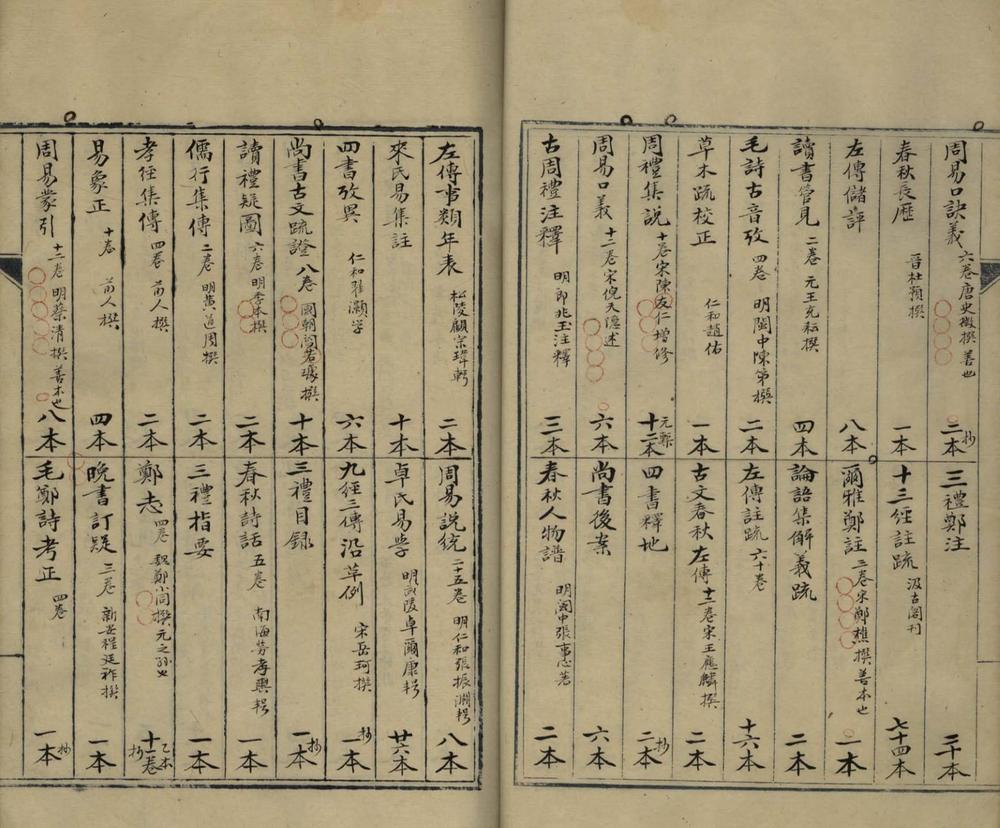 周易口訣義 六卷唐史徵撰 善也 三本 抄
春秋長歷 晉杜預撰 一本
左傳儲評 八本
讀書管見 二卷 元王充耘撰 四本
毛詩古音攷 四卷 明閩中陳第撰 二本
草木疏校正 仁和趙佑 一本
周禮集說 十卷宋陳友仁增修 元槧 十二本
周易口義 十二卷宋倪天隱述 六本
古周禮注釋 明郎兆玉注釋 三本
三禮鄭注 二十本
十三經註疏 汲古閣刊 七十四本
爾雅鄭註 三卷宋鄭樵撰 善本也 一本
論語集解義疏 二本
左傳註疏 六十卷 十六本
古文春秋左傳 十二卷宋王應麟撰 二本
四書釋地 抄 二本
尚書後案 六本
春秋人物譜 明閩中張事心著 二本
左傳事類年表 松陵顧宗瑋輯 二本
來氏易集註 十本
四書攷異 仁和翟灝學 六本
尚書古文疏證 八卷 國朝閻若璩撰 十本
讀禮疑圖 六卷 明季本撰 二本
儒行集傳 二卷 明黃道周撰 二本
孝經集傳 四卷 前人撰 二本
易象正 十卷 前人撰 四本
周易蒙引 十二卷 明蔡清撰 善本也 八本
周易說統 二十五卷 明仁和張振淵輯 八本
卓氏易學 明武陵卓爾康輯 廿六本
九經三傳沿革例 宋岳珂撰 抄 一本
三禮目録 抄 一本
春秋詩話 五卷 南海勞孝輿輯 一本
三禮指要 一本
鄭志 四卷 魏鄭小同撰元之孫也 乙本 十一卷 抄
晚書訂疑 三卷 新安程廷祚撰 一本
毛鄭詩考正 四卷 抄 一本